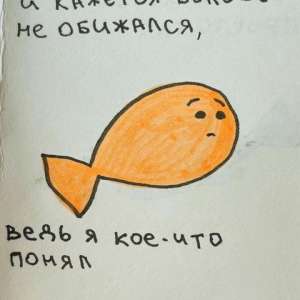 и кажется
не обижался,
ведь я кое-что
понял